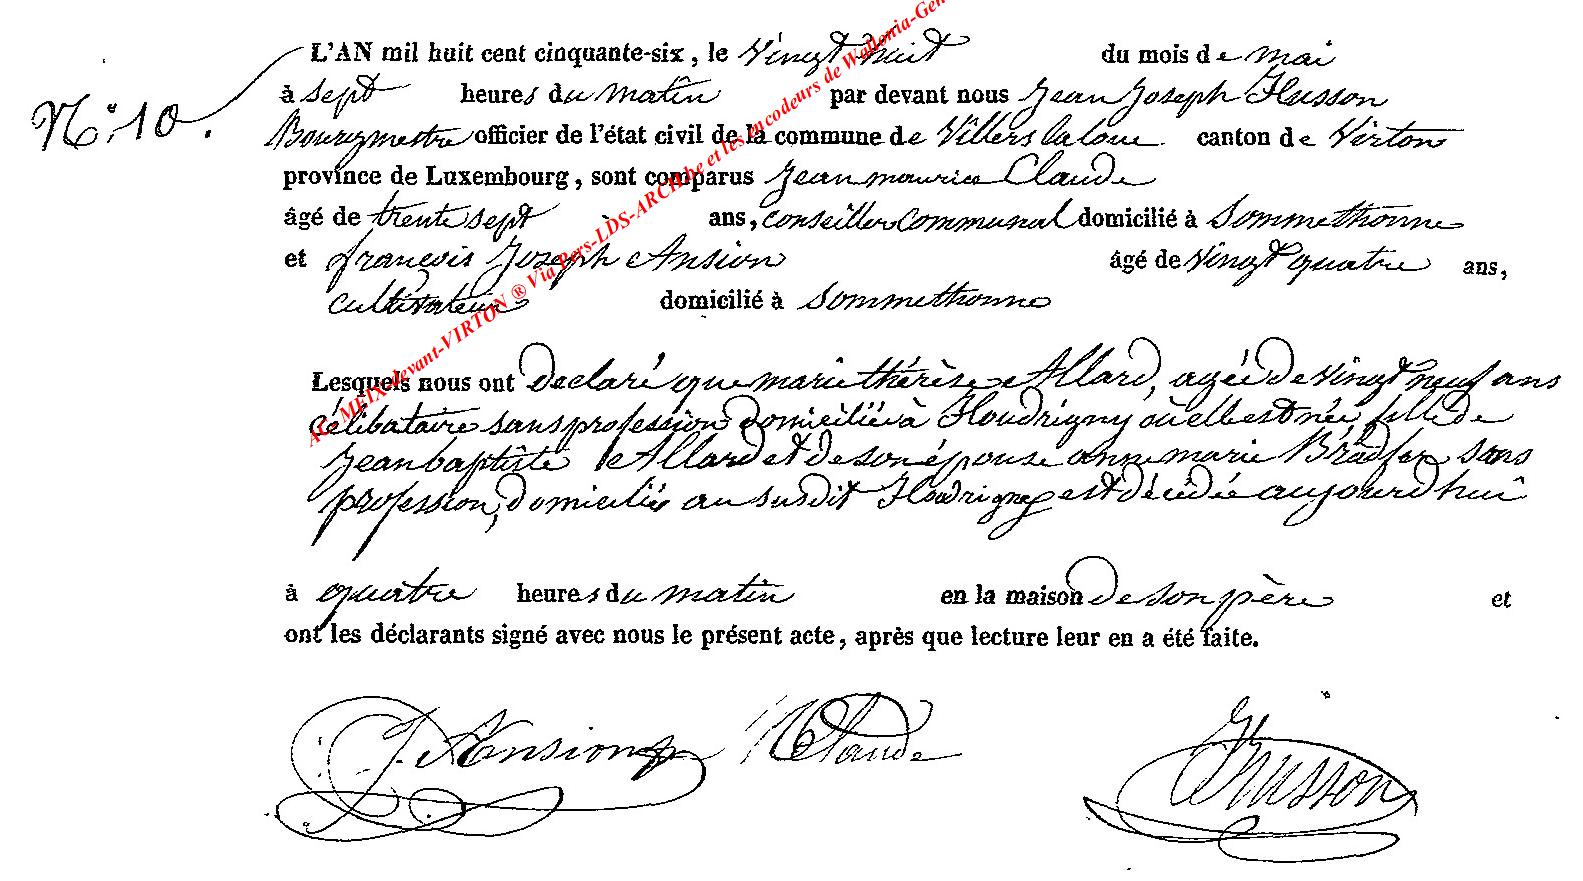 L'AN mil huit cent cinquante-six, le vingt huit du mois de mai
N° 10. à sept heures du matin par devant nous Jean Joseph Husson
Bourgmestre officier de l'état civil de la commune de Villers la loue canton de Virton
province de Luxembourg, sont comparus Jean maurice Claude
âgé de trente sept ans, conseiller communal domicilié à Sommethonne
et françois Joseph Ansion âgé de vingt quatre ans,
cultivateur domicilié à Sommethonne
Lesquels nous ont declaré que marie thérèse Allard, agée de vingt neuf ans
célibataire sans profession domiciliée à Houdrigny où elle est née, fille de
Jean baptiste Allard et de son épouse anne marie Bradfer sans
profession, domiciliés au susdit Houdrigny est décédée aujourd'hui
à quatre heures du matin en la maison de son père et
ont les déclarants signé avec nous le présent acte, après que lecture leur en a été faite.
J. Ansion Claude Husson
AC-MEIX-devant-VIRTON ® Via Pers-LDS-ARCH.be et les encodeurs de Wallonia-Gen